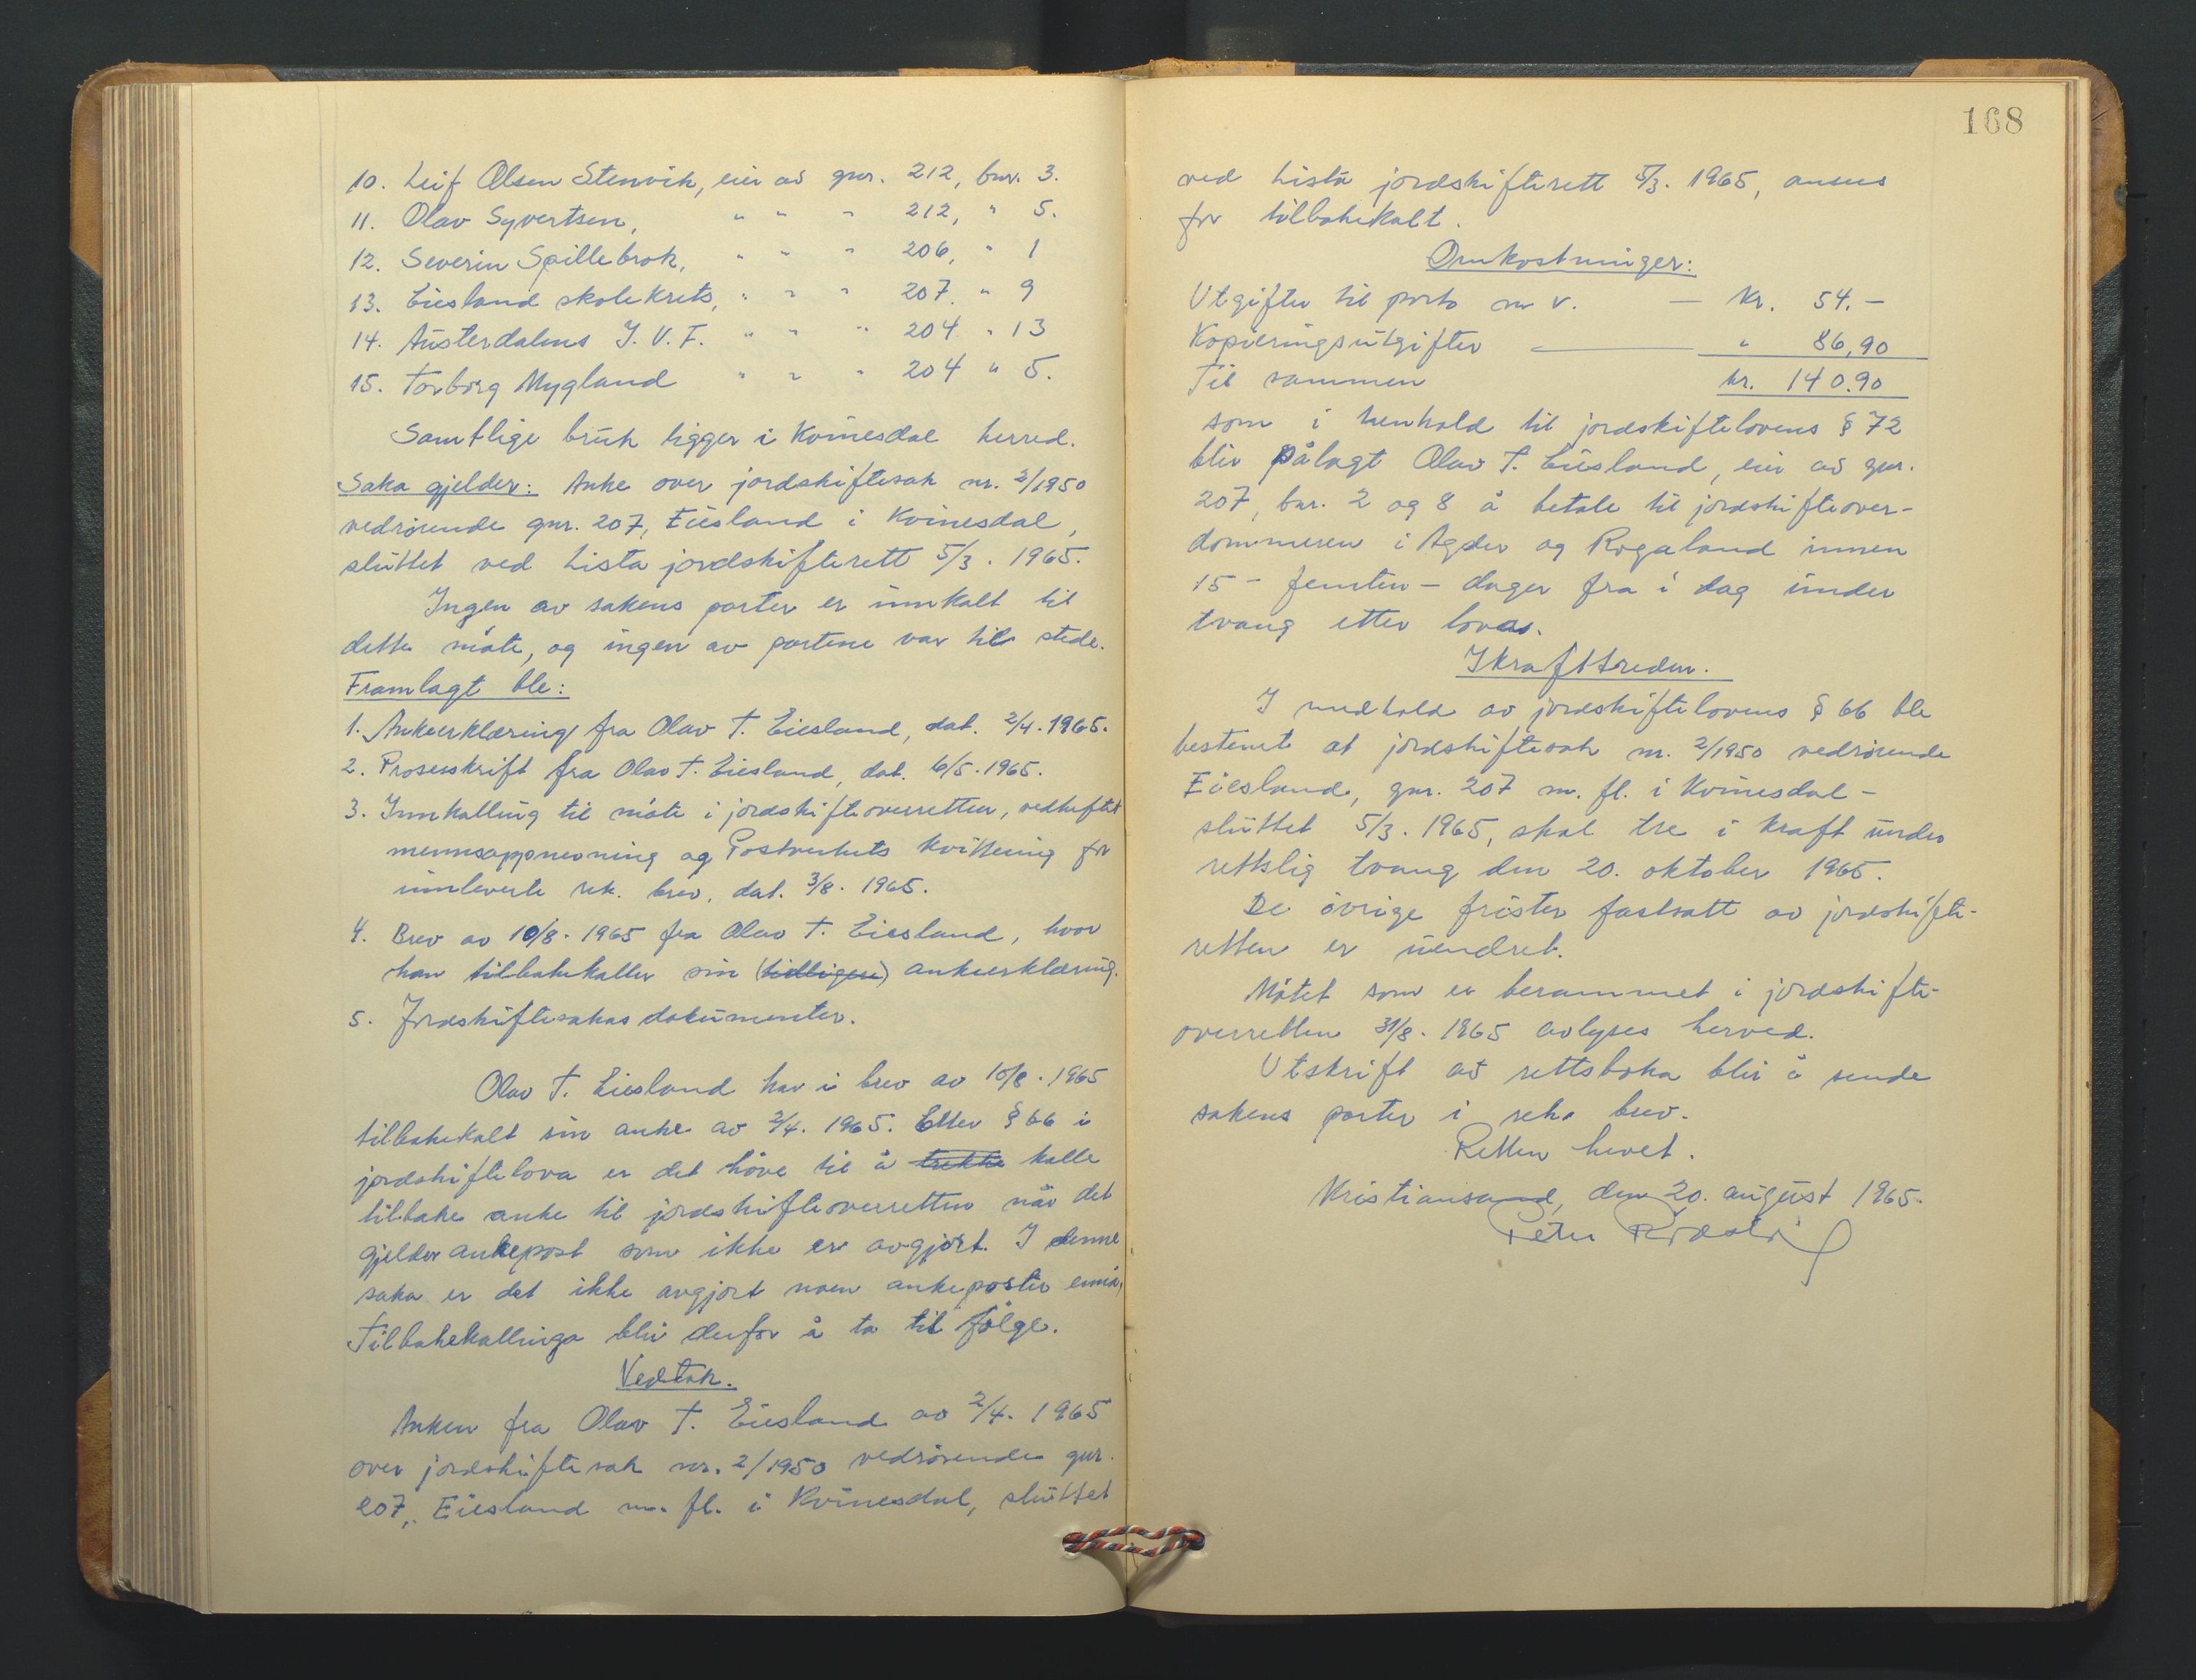 10. Leif Olsen Stenvik, eier av gnr. 212, bnr. 3.
11. Olav Syvertsen, " " " 212, " 5.
12. Severin Spillebrok, " " " 206, " 1
13. Eiesland skolekrets, " " " 207. " 9
14. Austerdalens J. V. F. " " " 204. " 13
15. Torborg Mygland " " " 204 " 5.
Samtlige bruk ligger i Kvinesdal herred.
Saka gjelder: Anke over jordskiftesak nr. 2/1950
vedrørende gnr. 207, Eiesland i Kvinesdal,
sluttet ved Lista jordskifterett 5/3. 1965.
Ingen av sakens parter er innkalt til
dette møte, og ingen av partene var til stede.
Framlagt ble:
1. Ankeerklæring fra Olav T. Eiesland, dat. 2/4. 1965.
2. Prosesskrift fra Olav T. Eiesland, dat. 6/5. 1965.
3. Innkalling til møte i jordskifteoverretten, vedheftet
mennsoppnevning og Postverkets kvittering for
innleverte rek. brev, dat. 3/8. 1965.
4. Brev av 10/8. 1965 fra Olav T. Eiesland, hvor
han tilbakekaller sin (tidligere) ankeerklæring.
5. Jordskiftesakas dokumenter.
Olav T. Eiesland har i brev av 10/8. 1965
tilbakekalt sin anke av 2/4. 1965. Etter § 66 i
jordskiftelova er det høve til å trekke kalle
tilbake anke til jordskifteoverretten når det
gjelder ankepost som ikke er avgjort. I denne
saka er det ikke avgjort noen ankeposter ennå,
Tilbakekallinga blir derfor å ta til følge.
Vedtak.
Anken fra Olav T. Eiesland av 2/4. 1965
over jordskiftesak nr. 2/1950 vedrørende gnr.
207, Eiesland m. fl. i Kvinesdal, sluttet
168
ved Lista jordskifterett 5/3. 1965, anses
for tilbakekalt.
Omkostninger:
Utgifter til porto m v. — kr. 54.-
Kopieringsutgifter — " 86,90
Til sammen kr. 140.90
som i henhold til jordskiftelovens § 72
blir pålagt Olav T. Eiesland, eier av gnr.
207, bnr. 2 og 8 å betale til jordskifteover-
dommeren i Agder og Rogaland innen
15 - femten - dager fra i dag under
tvang etter lova.
Ikrafttreden.
I medhold av jordskiftelovens § 66 ble
bestemt at jordskiftesak nr. 2/1950 vedrørende
Eiesland, gnr. 207 m. fl. i Kvinesdal -
sluttet 5/3. 1965, skal tre i kraft under
rettslig tvang den 20. oktober 1965.
De øvrige frister fastsatt av jordskifte-
retten er uendret.
Møtet som er berammet i jordskifte-
overretten 31/8. 1965 avlyses herved.
Utskrift av rettsboka blir å sende
sakens parter i rek. brev.
Retten hevet.
Kristiansand, den 20. august 1965.
Peter